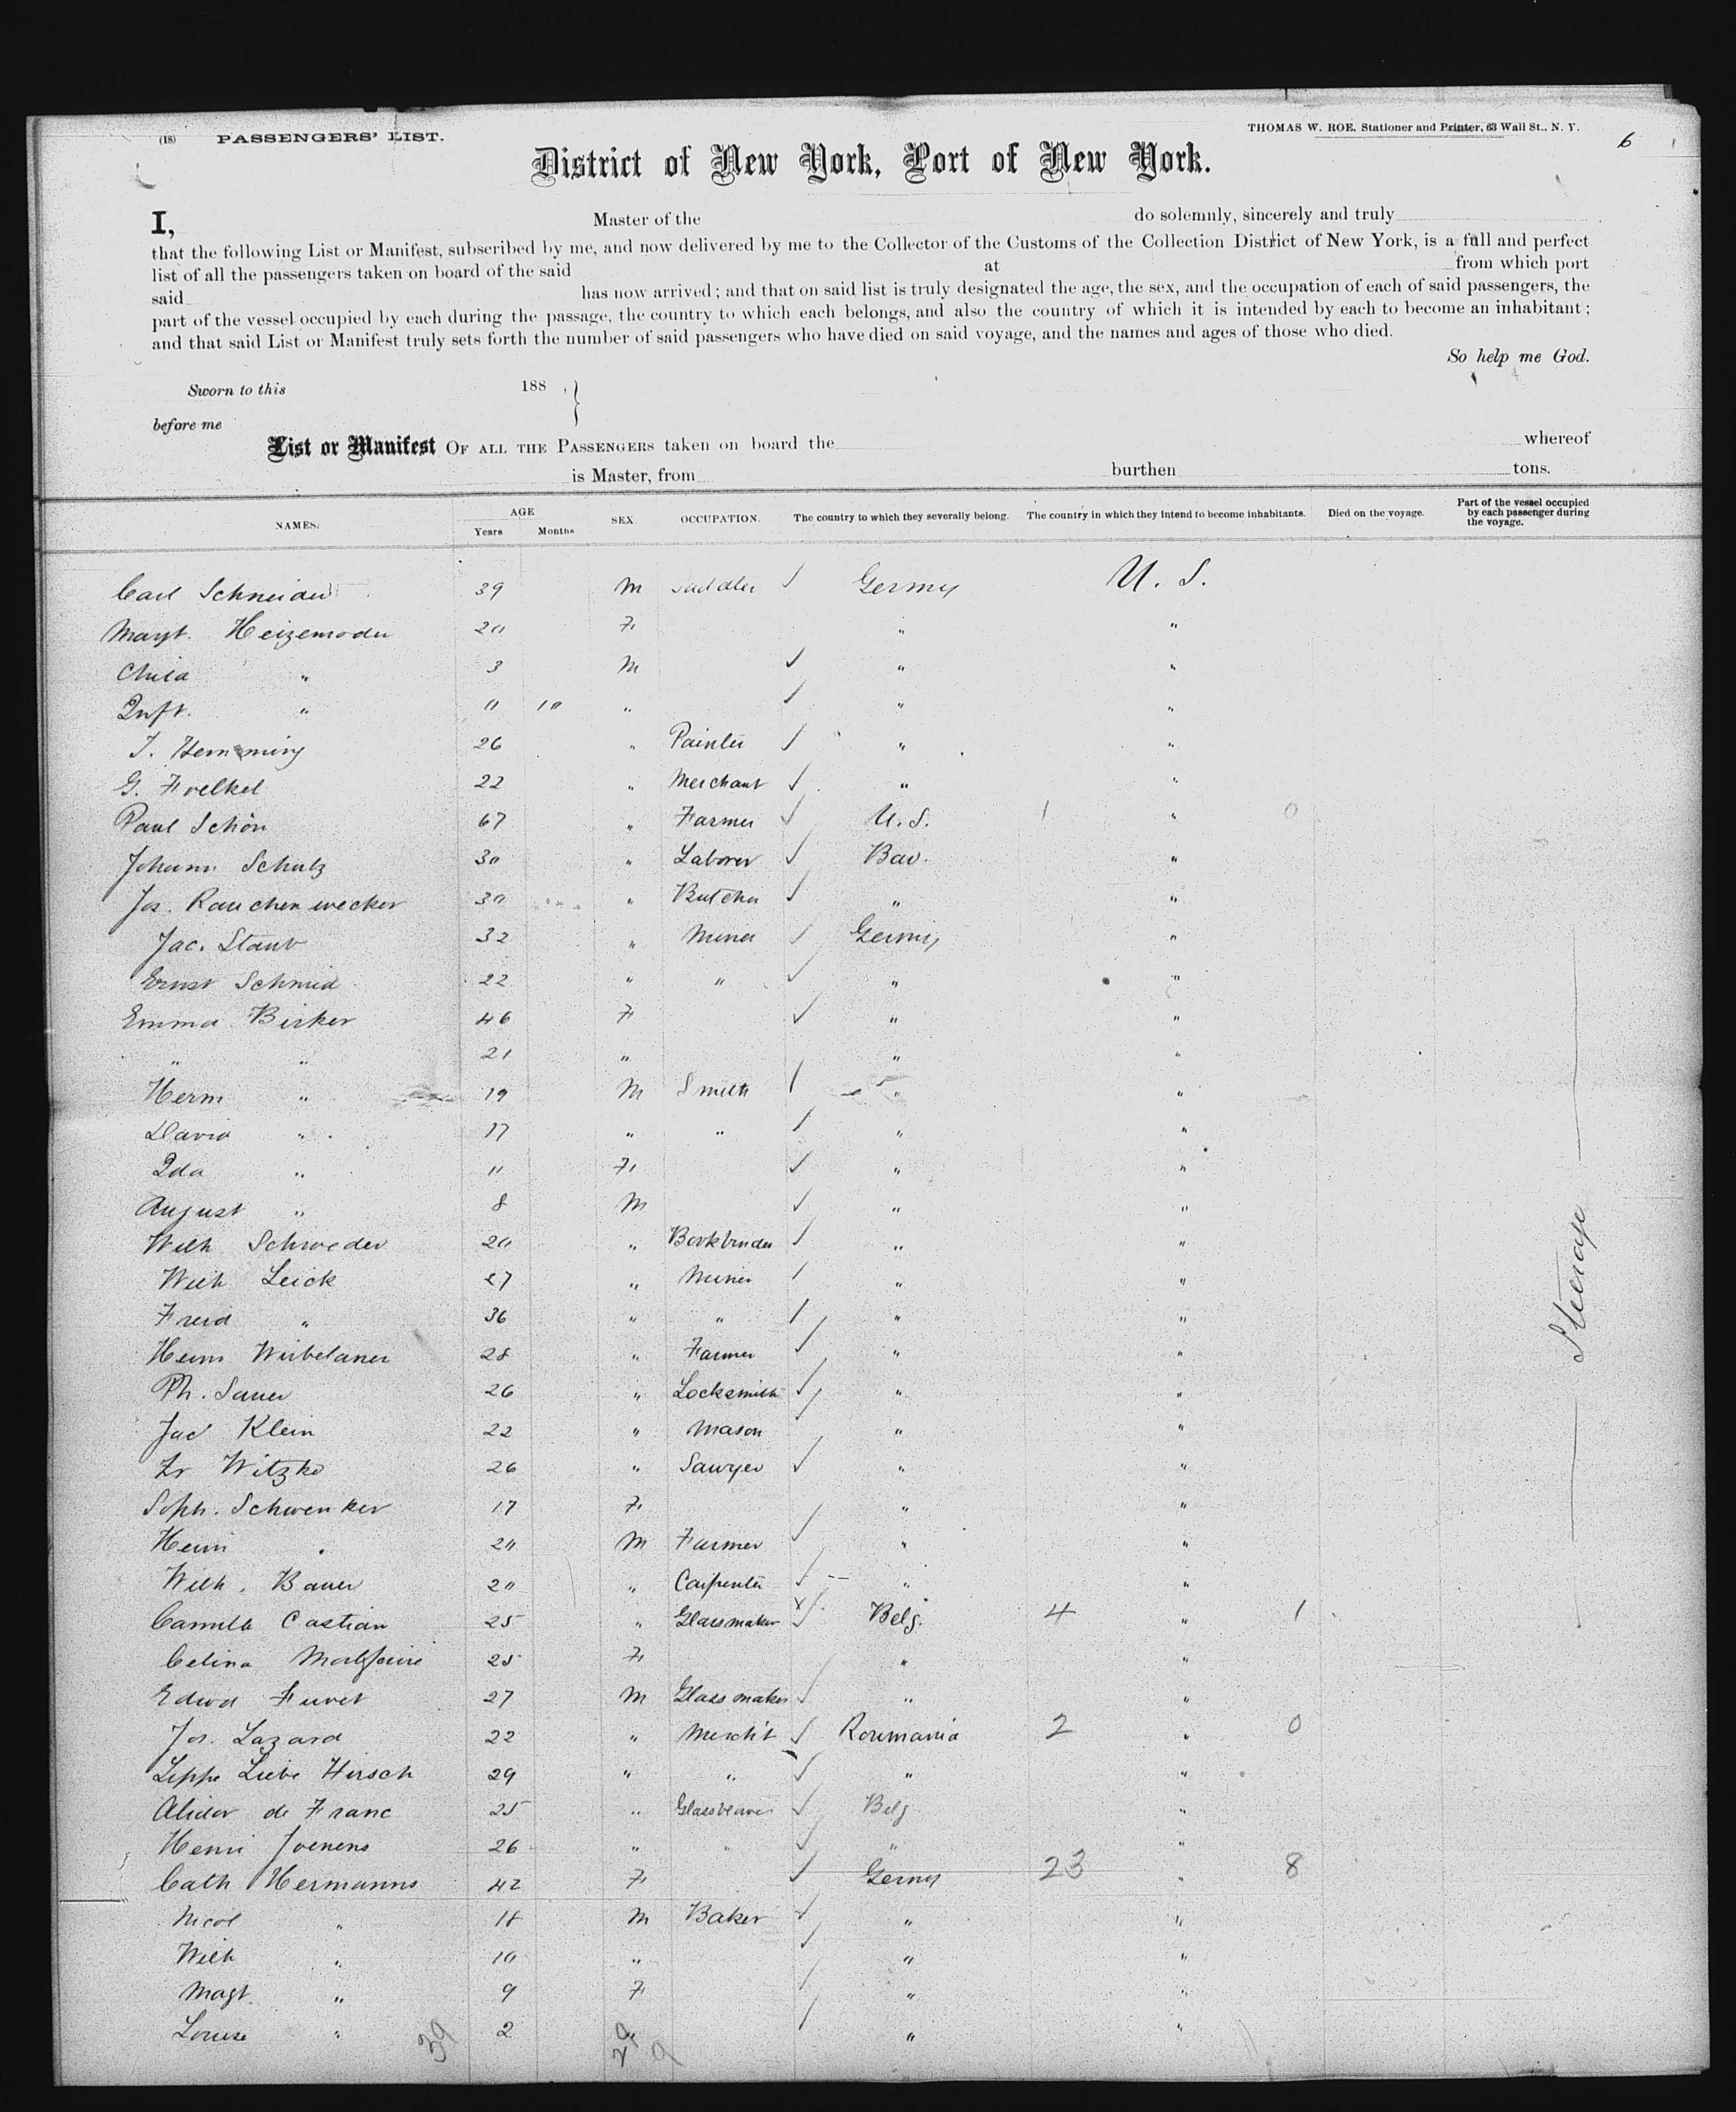 (18) PASSENGERS' LIST. THOMAS W. ROE, Stationer and Printer, 63 Wall St., N. Y. 6
District of New York, Port of New York.
I, Master of the do solemnly, sincerely and truly
that the following List or Manifest, subscribed by me, and now delivered by me to the Collector of the Customs of the Collection District of New York, is a full and perfect
list of all the passengers taken on board of the said at from which port
said has now arrived; and that on said list is truly designated the age, the sex, and the occupation of each of said passengers, the
part of the vessel occupied by each during the passage, the country to which each belongs, and also the country of which it is intended by each to become an inhabitant;
and that said List or Manifest truly sets forth the number of said passengers who have died on said voyage, and the names and ages of those who died.
So help me God.
Sworn to this 188 , }
before me
List or Manifest OF ALL THE PASSENGERS taken on board the whereof
is Master, from burthen tons.
NAMES. AGE Years Months SEX OCCUPATION. The country to which they severally belong. The country in which they intend to become inhabitants. Died on the voyage. Part of the vessel occupied by each passenger during the voyage.
Carl Schneider 39 M saddler ✓ Germy U. S.
Margt. Heizemoder 20 F " "
Child " 3 M ✓ " "
Inft. " 0 10 " ✓ " "
J. Hemming 26 " Painter ✓ " "
G. Foelkel 22 " Merchant ✓ " "
Paul Schön 67 " Farmer ✓ U. S. 1 " 0
Johann Schulz 30 " Laborer ✓ Bav. "
Jos. Rauchenwecker 30 " Butcher ✓ " "
Jac. Staub 32 " Miner ✓ Germy "
Ernst Schmid 22 " " ✓ " "
Emma Birker 46 F ✓ " "
" " 21 " " "
Herm " 19 M Smith / " "
David " 17 " " / " "
Ida " 11 F ✓ " "
August " 8 M ✓ " "
Wilh Schroeder 20 " Bookbinder ✓ " "
Wilh Leick 27 " Miner / " "
Fried " 36 " " / " "
Herm 28 " Farmer ✓ " "
Ph. Sauer 26 " Locksmith ✓ " "
Jac Klein 22 " Mason ✓ " "
Fr Witzke 26 " Sawyer ✓ " "
Soph. Schwenker 17 F " "
Heinr " 20 M Farmer ✓ " "
Wilh. Bauer 20 " Carpenter ✓ " "
Camille Castian 25 " Glassmaker x✓ Belg. 4 " 1
Celina 25 F / " "
Edwd Fuvet 27 M Glassmaker ✓ " "
Jos. Lazard 22 " Mercht ✓ Roumania 2 " 0
Lippe Liebe Hirsch 29 " " ✓ " "
Alidor de Franc 25 " ✓ Belg "
Henri Joenens 26 " " ✓ " "
Cath Hermanns 42 F ✓ Germy 23 " 8
Nicol " 18 M Baker ✓ " "
Wilh " 10 " ✓ " "
Magt. " 9 F / " "
Louise " 2 " / " "
39 29 9
Steerage